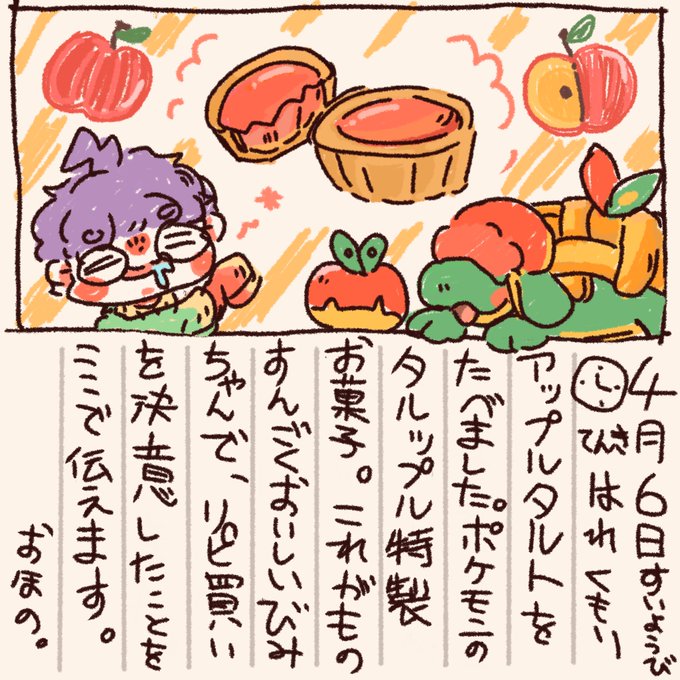 4月6日すいようび
てんきはれくもり
アップルタルトを
たべました。ポケモンの
タルップル特製
お菓子。これがもの
すんごくおいしいびみ
ちゃんで、リピ買い
を決意したことを
ここで伝えます。
おほの。